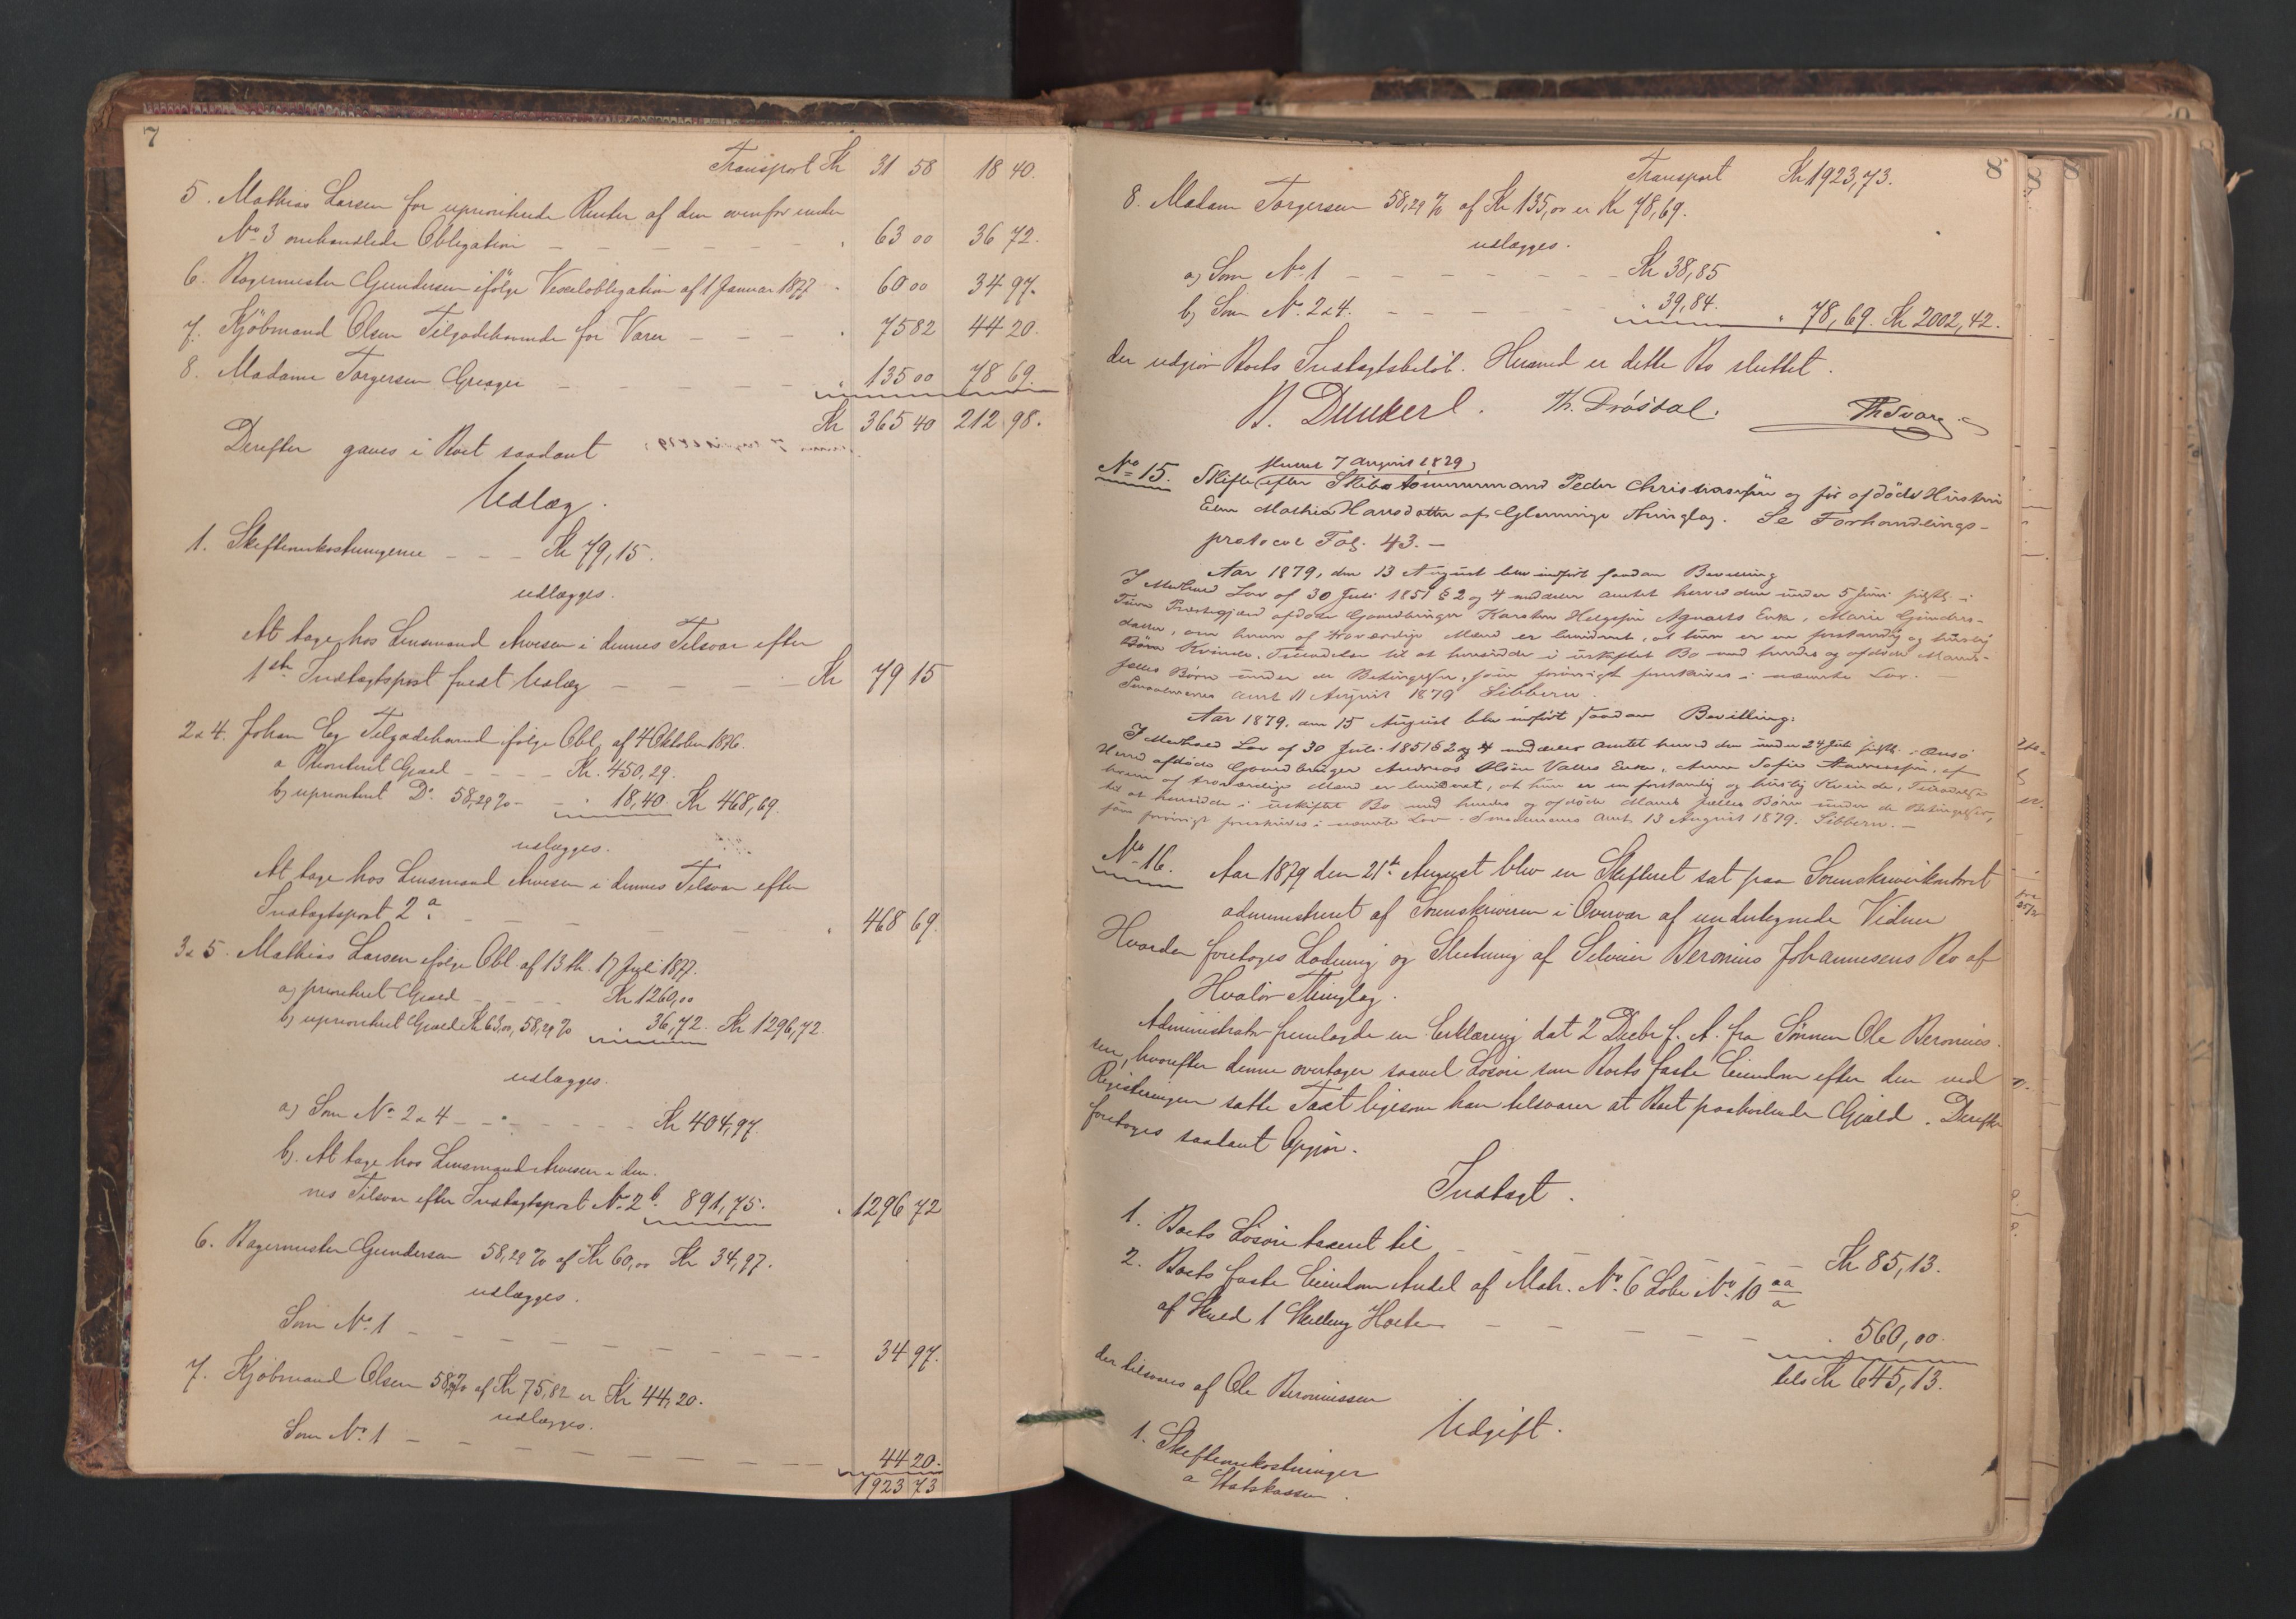 7
Transport Kr 31 58 18 40.
5. Mathias Larsen for uprioriterede Renter af den ovenfor under
No 3 omhandlede Obligation — — — 63 00 36 72.
6. Bagermester Gundersen ifølge Vexelobligation af 1 Januar 1877 " 60 00 34 97.
7. Kjöbmand Olsen Tilgodehavende for Varer — — — " 75 82 44 20.
8. Madame Torgersen Greager — — — " 135 00 78 69.
Kr 365 40 212 98.
Derefter gaves i Boet saadant
Udlæg.
1. Skifteomkostningerne — — — Kr 79,15.
udlægges.
At tage hos Lensmand Arvesen i dennes Tilsvar efter
1ste Indtægtspost fuldt Udlæg — — — Kr 79 15
2 & 4. Johan Eg Tilgodehavend ifølge Obl. af 4 Oktober 1876.
a Prioriteret Gjæld — — — Kr. 450,29.
b) uprioriteret Do 58,29 % — — " 18,40. Kr 468,69.
udlægges.
At tage hos Lensmand Arvesen i dennes Tilsvar efter
Indtægtspost 2 a. — — — " 468 69.
3 & 5. Mathias Larsen ifølge Obl. af 13 th. 17 Juli 1877.
a) prioriteret Gjæld — — — Kr 1260,00
b) uprioriteret Gjæld Kr 63,00, 58,29 % " 36,72. Kr 1296,72.
udlægges.
a) Som No 2 & 4 — — — Kr 404,97.
b). At tage hos Lensmand Arvesen i den-
nes Tilsvar efter Indtægtspost No 2 b. 891,75. " 1296 72
6. Bagermester Gundersen 58,29 % af Kr 60,00 Kr 34,97.
udlægges.
Som No 1 — — — 34 97.
7. Kjöbmand Olsen 58,29 % af Kr 75,82 er Kr 44,20.
udlægges.
Som No 1 — — — 44 20.
1923 73
8
Transport Kr 1923,73.
8. Madam Torgersen 58,29 % af Kr 135,00 er Kr 78,69.
udlægges.
a) Som No 1 — — — Kr 38,85
b) Som No. 2 & 4. — — — " 39,84. " 78,69. Kr 2002,42.
der udgjør Boets Indtægtsbeløb. Hermed er dette Bo sluttet.
B. Dunker. Th. Drösdal.
sluttet 7 August 1879
No 15. Skifte efter Skibstømmermand Peder Christiansen og før afdöde Hustru
Ellen Mathia Hansdatter af Glemminge Thinglag. Se Forhandlings-
protocol Fol. 43. —
Aar 1879, den 13 August blev indført saadan Bevilling
I Medhold Lov af 30 Juli 1851 § 2 og 4 meddeler Amtet herved den under 5 Juni sidstl. i
Tune Præstegjæld afdöde Gaardbruger Karsten Helgesen Agnalts Enke, Marie Gunders-
datter, om hvem af troværdige Mænd er bevidnet, at hun er en forstandig og huslig
Kvinde, Tilladelse til at hensidde i uskiftet Bo med hendes og afdöde Mands
fælles Børn under de Betingelser, som forövrigt foreskrives i nævnte Lov. —
Smaalenenes Amt 11 August 1879 Sibbern.
Aar 1879. den 15 August blev indført saadan Bevilling:
I Medhold Lov af 30 Juli 1851 § 2 og 4 meddeler Amtet herved den under 24 Juli sidstl. i Onsö
Herred afdöde Gaardbruger Andreas Olsen Valles Enke, Anna Sofie Andreassen, af
hvem af troværdige Mænd er bevidnet, at hun er en forstandig og huslig Kvinde, Tilladelse
til at hensidde i uskiftet Bo med hendes og afdöde Mands fælles Børn under de Betingelser,
som forövrigt foreskrives i nævnte Lov. Smaalenenes Amt 13 August 1879. Sibbern. —
No 16. Aar 1879 den 21de August blev en Skifteret sat paa Sorenskriverkontoret
administreret af Sorenskriveren i Overvær af undertegnede Vidner
Hvorda foretoges Lodning og Slutning af Selveier Beronius Johannesens Bo af
Hvalør Thinglag.
Administrator fremlagde en Erklæring dat 2 Decbr f. A. fra Sønnen Ole Beronius-
sen, hvorefter denne overtager saavel Løsøre som Boets faste Eiendom efter den ved
Registreringen satte Taxt ligesom han tilsvarer at Boet paahvilende Gjæld. Derefter
foretoges saadant Opgjør.
Indtægt.
1. Boets Løsøre taxeret til — — — Kr 85,13.
2. Boets faste Eiendom Andel af Matr. No 6 Løbe No 10 aa/a
af Skyld 1 Skilling Hvete — — — " 560,00.
tils Kr 645,13.
der tilsvares af Ole Beroniussen
Udgift.
1. Skifteomkostninger
a Statskassen.